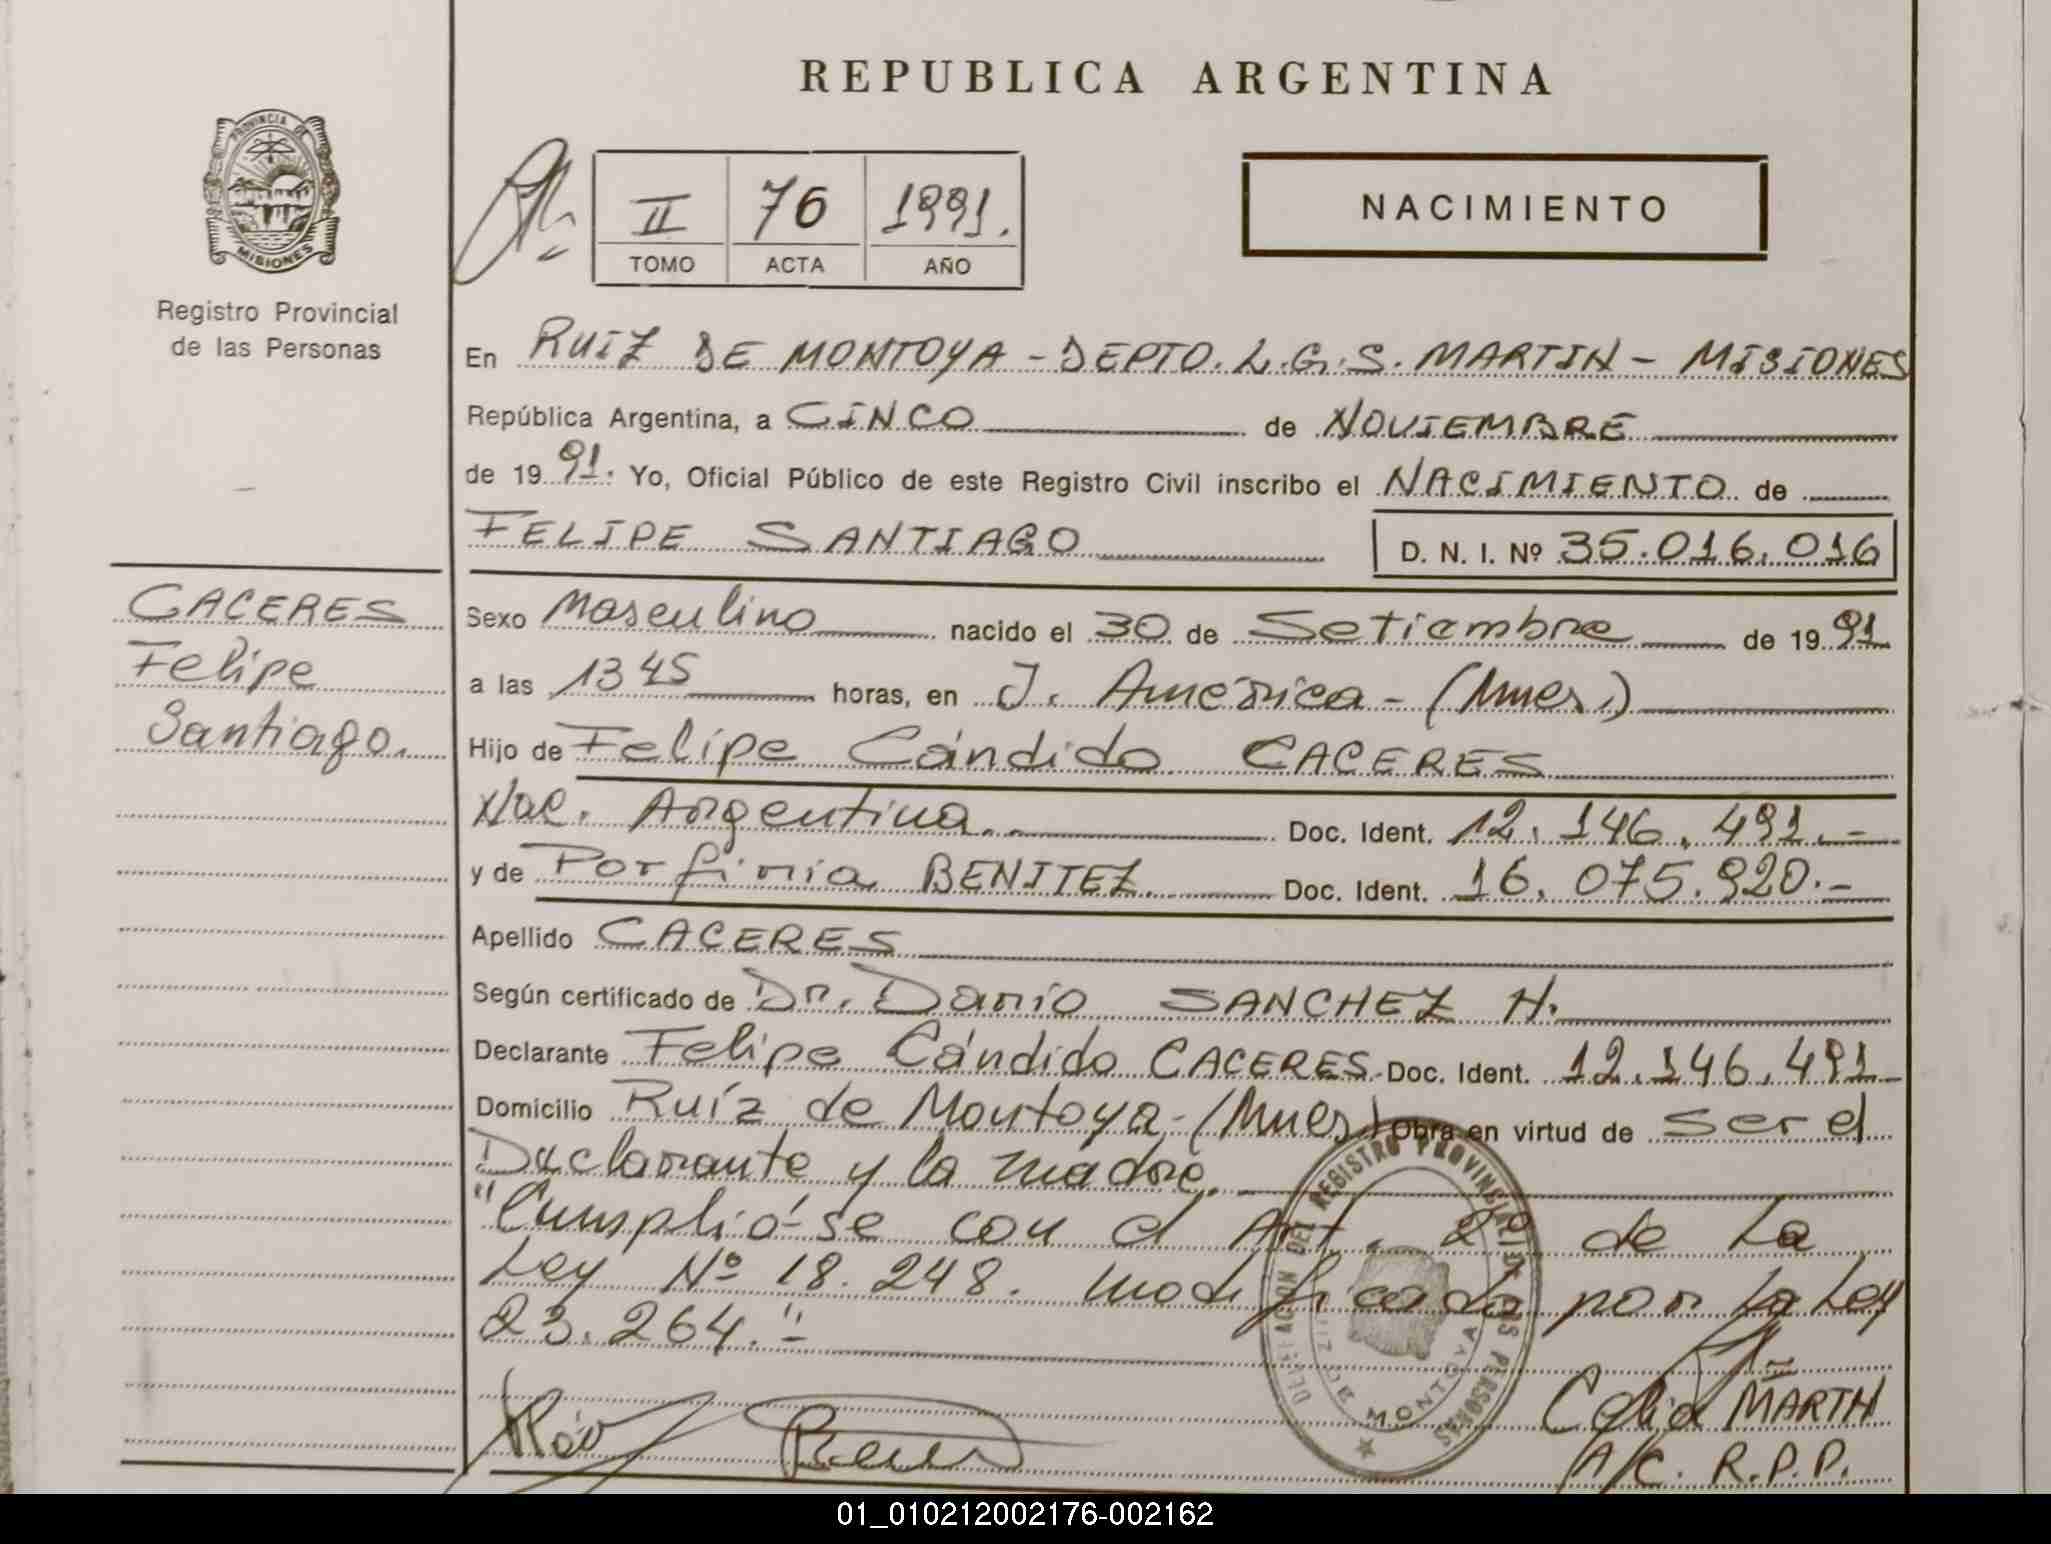 REPUBLICA ARGENTINA
PROVINCIA DE
MISIONES
Registro Provincial
de las Personas
II 76 1991.
TOMO ACTA AÑO
NACIMIENTO
En RUIZ DE MONTOYA - DEPTO. L.G.S. MARTIN - MISIONES
República Argentina, a CINCO de NOVIEMBRE
de 1991. Yo, Oficial Público de este Registro Civil inscribo el NACIMIENTO de
FELIPE SANTIAGO D. N. I. Nº 35.016.016
CACERES
Felipe
Santiago.
Sexo Masculino nacido el 30 de Setiembre de 1991
a las 1345 horas, en J. América - (Mnes.)
Hijo de Felipe Cándido CACERES
Nac. Argentina. Doc. Ident. 12.146.491.-
y de Porfiria BENITEZ. Doc. Ident. 16.075.920.-
Apellido CACERES
Según certificado de Dr. Dario SANCHEZ H.
Declarante Felipe Cándido CACERES. Doc. Ident. 12.146.491-
Domicilio Ruíz de Montoya-(Mnes) Obra en virtud de ser el
Declarante y la madre.
"Cumplió-se con el Art. 2º de La
Ley Nº 18.248. modificada por La Ley
23.264."-
DELEGACION DEL REGISTRO PROVINCIAL DE LAS PERSONAS
RUIZ DE MONTOYA
Celia MARTH
A/C. R.P.P.
01_010212002176-002162